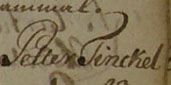 ammat.
Petter Finckel